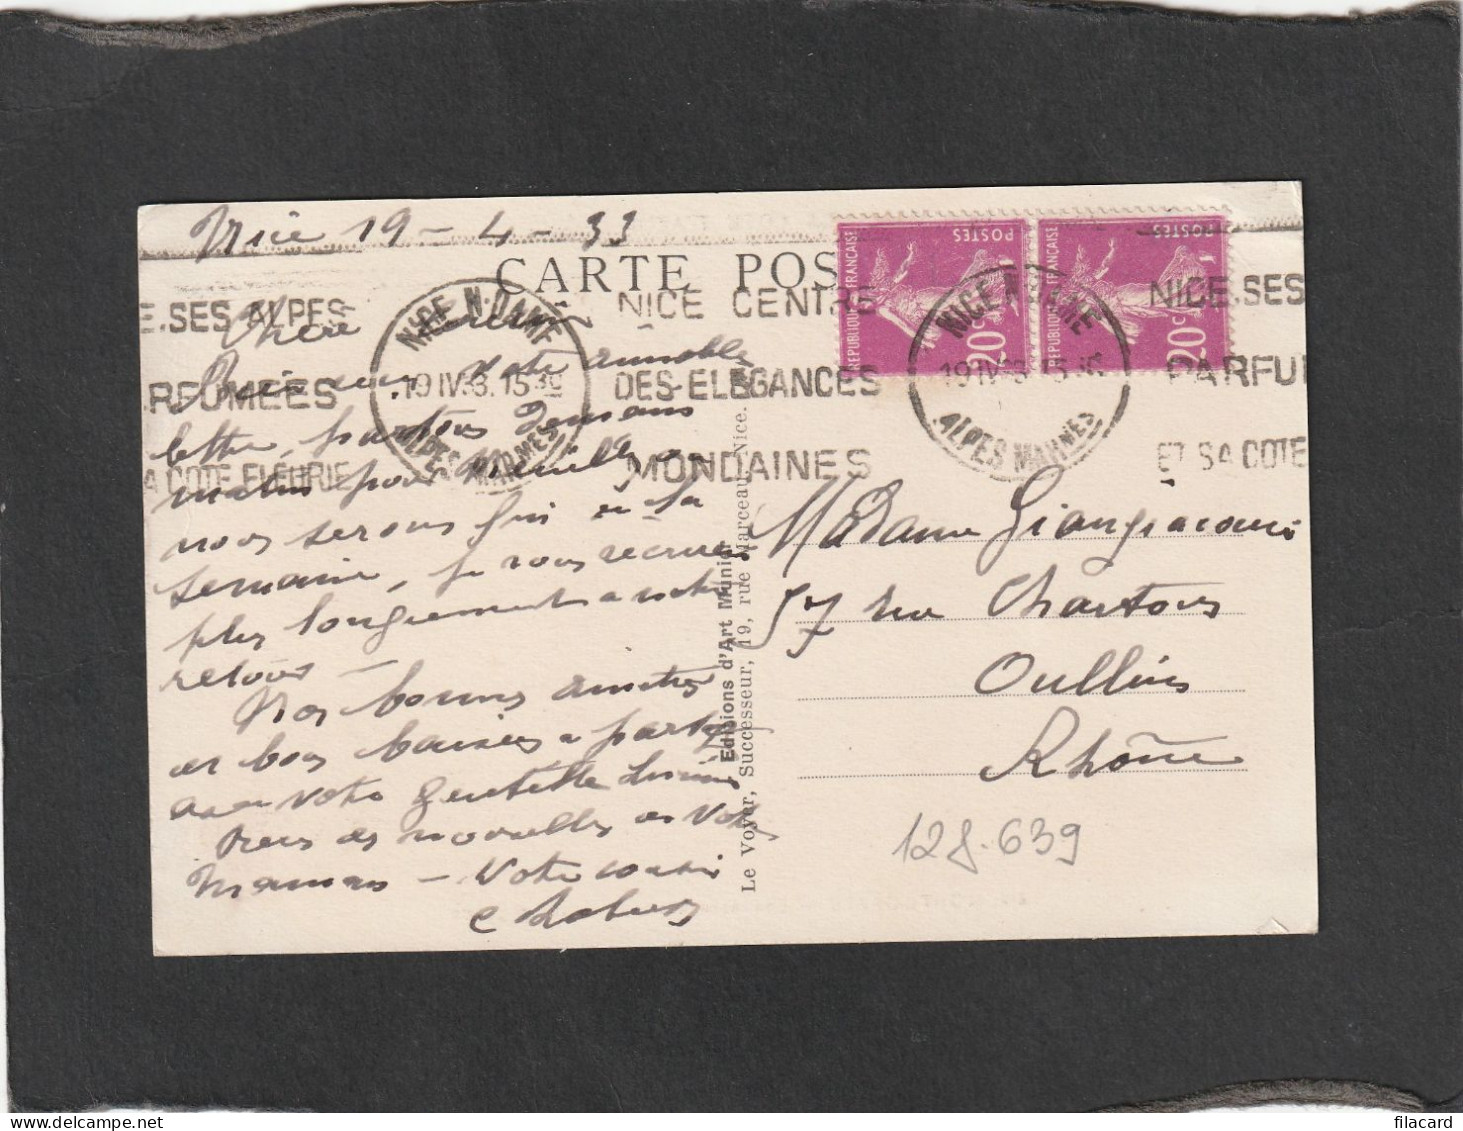 Nice 19 - 4 - 33
CARTE POS
NICE N. DAME
19 IV 3. 15 30
ALPES MARMES
E.SES ALPES
RFUMÉES
A CÔTE FLEURIE
NICE CENTRE
DES ELEGANCES
MONDAINES
NICE.SES
PARFU
ET SA CÔTE
NICE N. DAME
19 IV 3
ALPES MARMES
REPUBLIQUE FRANÇAISE
POSTES
20c
REPUBLIQUE FRANÇAISE
POSTES
20c
Chère
votre aimable
lettre, partons Demain
matin pour
nous serons
semaine, je vous
plus longuement à notre
retour
Nos bonnes amitiés
et bons baisers à
avec votre gentille
des nouvelles de votre
Maman - Votre cousin
Editions d'Art Munier
Le Voyer, Successeur, 19, rue Marceau, Nice.
Madame Giangiacomi
57 rue Chartons
Oullins
Rhône
128.639
filacard